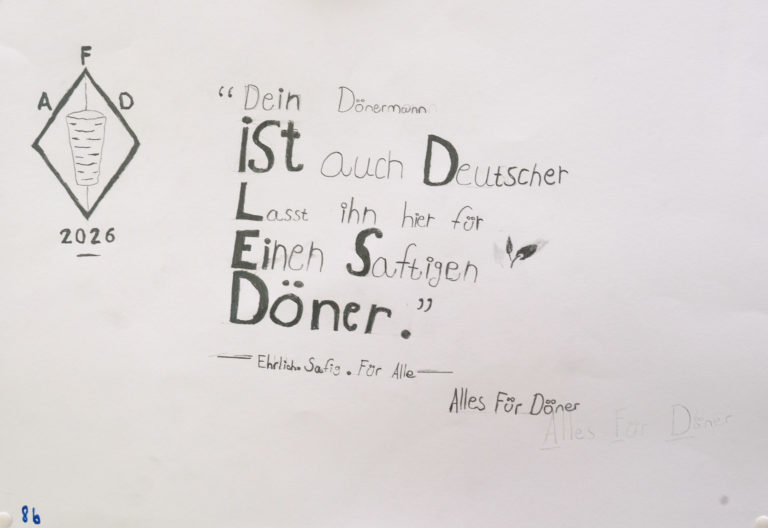 F
A D
2026
“Dein Dönermann
iSt auch Deutscher
Lasst ihn hier für
Einen Saftigen
Döner.”
— Ehrlich. Safig. Für Alle —
Alles Für Döner
Alles Für Döner
86